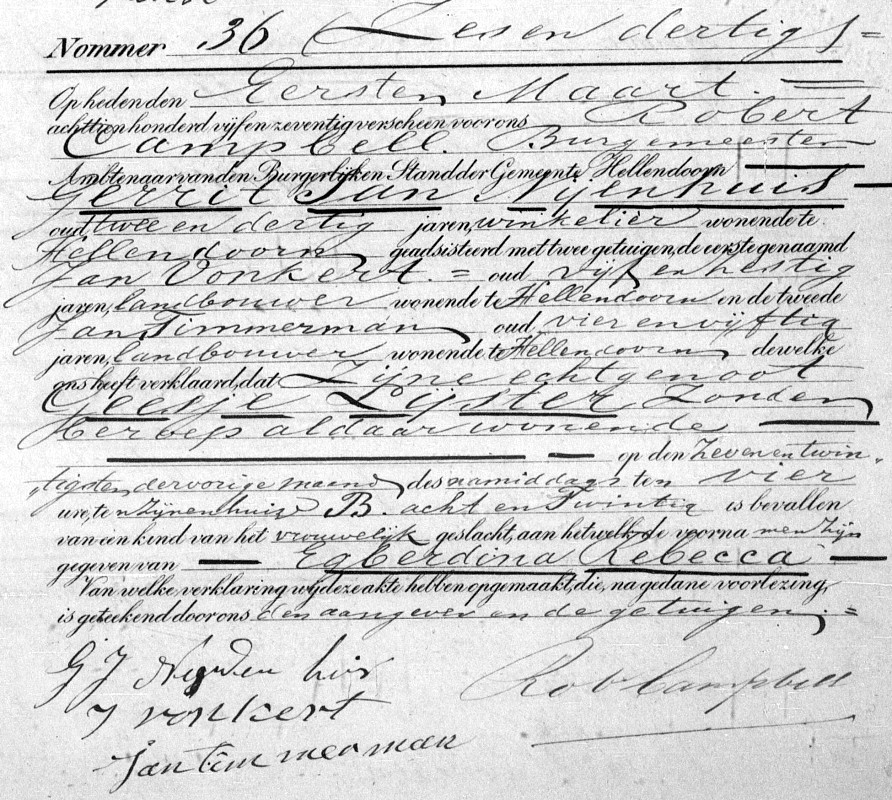 Nommer 36 (Zes en dertig) =
Op heden den Eersten Maart. =
achttien honderd vijf en zeventig verscheen voor ons Robert
Campbell. Burgemeester
Ambtenaar van den Burgerlijken Stand der Gemeente Hellendoorn
Gerrit Jan Nijenhuis
oud, twee en dertig jaren, winkelier wonende te
Hellendoorn geadsisteerd met twee getuigen, de eerste genaamd
Jan Vonkert. = oud vijf en zestig
jaren, landbouwer wonende te Hellendoorn en de tweede
Jan Timmerman oud, vier en vijftig
jaren, landbouwer wonende te Hellendoorn dewelke
ons heeft verklaard, dat Zijne echtgenoot
Geesje Lijster Zonder
Beroep aldaar wonende
op den Zeven en twin„
„tigsten der vorige maand des namiddags ten vier
ure, ten Zijnen huize B. acht en Twintig is bevallen
van een kind van het vrouwelijk geslacht, aan hetwelk de voornamen Zijn
gegeven van Egberdina Rebecca
Van welke verklaring wij deze akte hebben opgemaakt, die, na gedane voorlezing,
is geteekend door ons den aangever en de getuigen. =
G J Nijenhuis
J vonkert
Rob Campbell
Jan timmerman